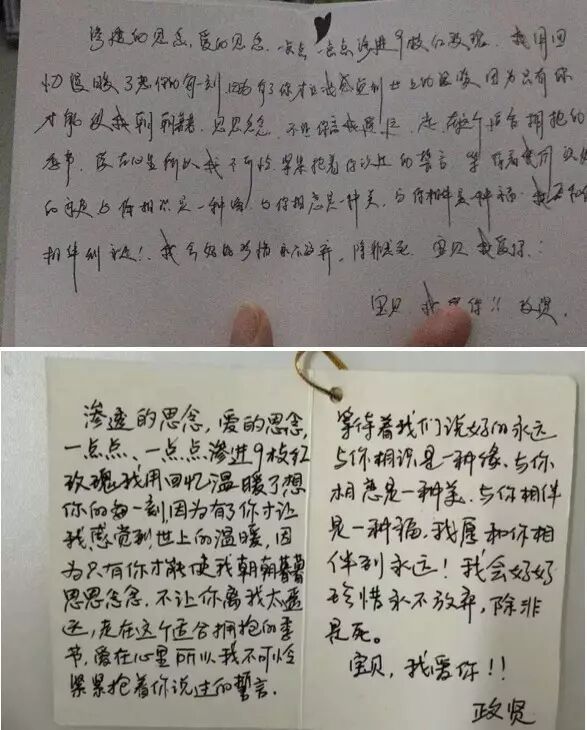 渗透的思念，爱的思念，一点点一点点渗进9枚红玫瑰，我用回
忆温暖了想你的每一刻，因为有了你才让我感觉到世上的温暖，因为只有你
才能使我朝朝暮暮，思思念念，不让你离我太遥远，走在这个适合拥抱的
季节，爱在心里所以我不可怜，紧紧抱着你说过的誓言，等待着我们说好
的永远与你相识是一种缘，与你相恋是一种美，与你相伴是一种福，我愿和你
相伴到永远！我会好好珍惜永不放弃，除非是死。宝贝我爱你！
宝贝 我爱你！！政贤
渗透的思念，爱的思念，
一点点、一点点渗进9枚红
玫瑰我用回忆温暖了想
你的每一刻，因为有了你才让
我感觉到世上的温暖，因
为只有你才能使我朝朝暮暮
思思念念，不让你离我太遥
远，走在这个适合拥抱的季
节，爱在心里所以我不可怜
紧紧抱着你说过的誓言．
等待着我们说好的永远
与你相识是一种缘、与你
相恋是一种美、与你相伴
是一种福，我愿和你相
伴到永远！我会好好
珍惜永不放弃，除非
是死。
宝贝，我爱你！！
政贤